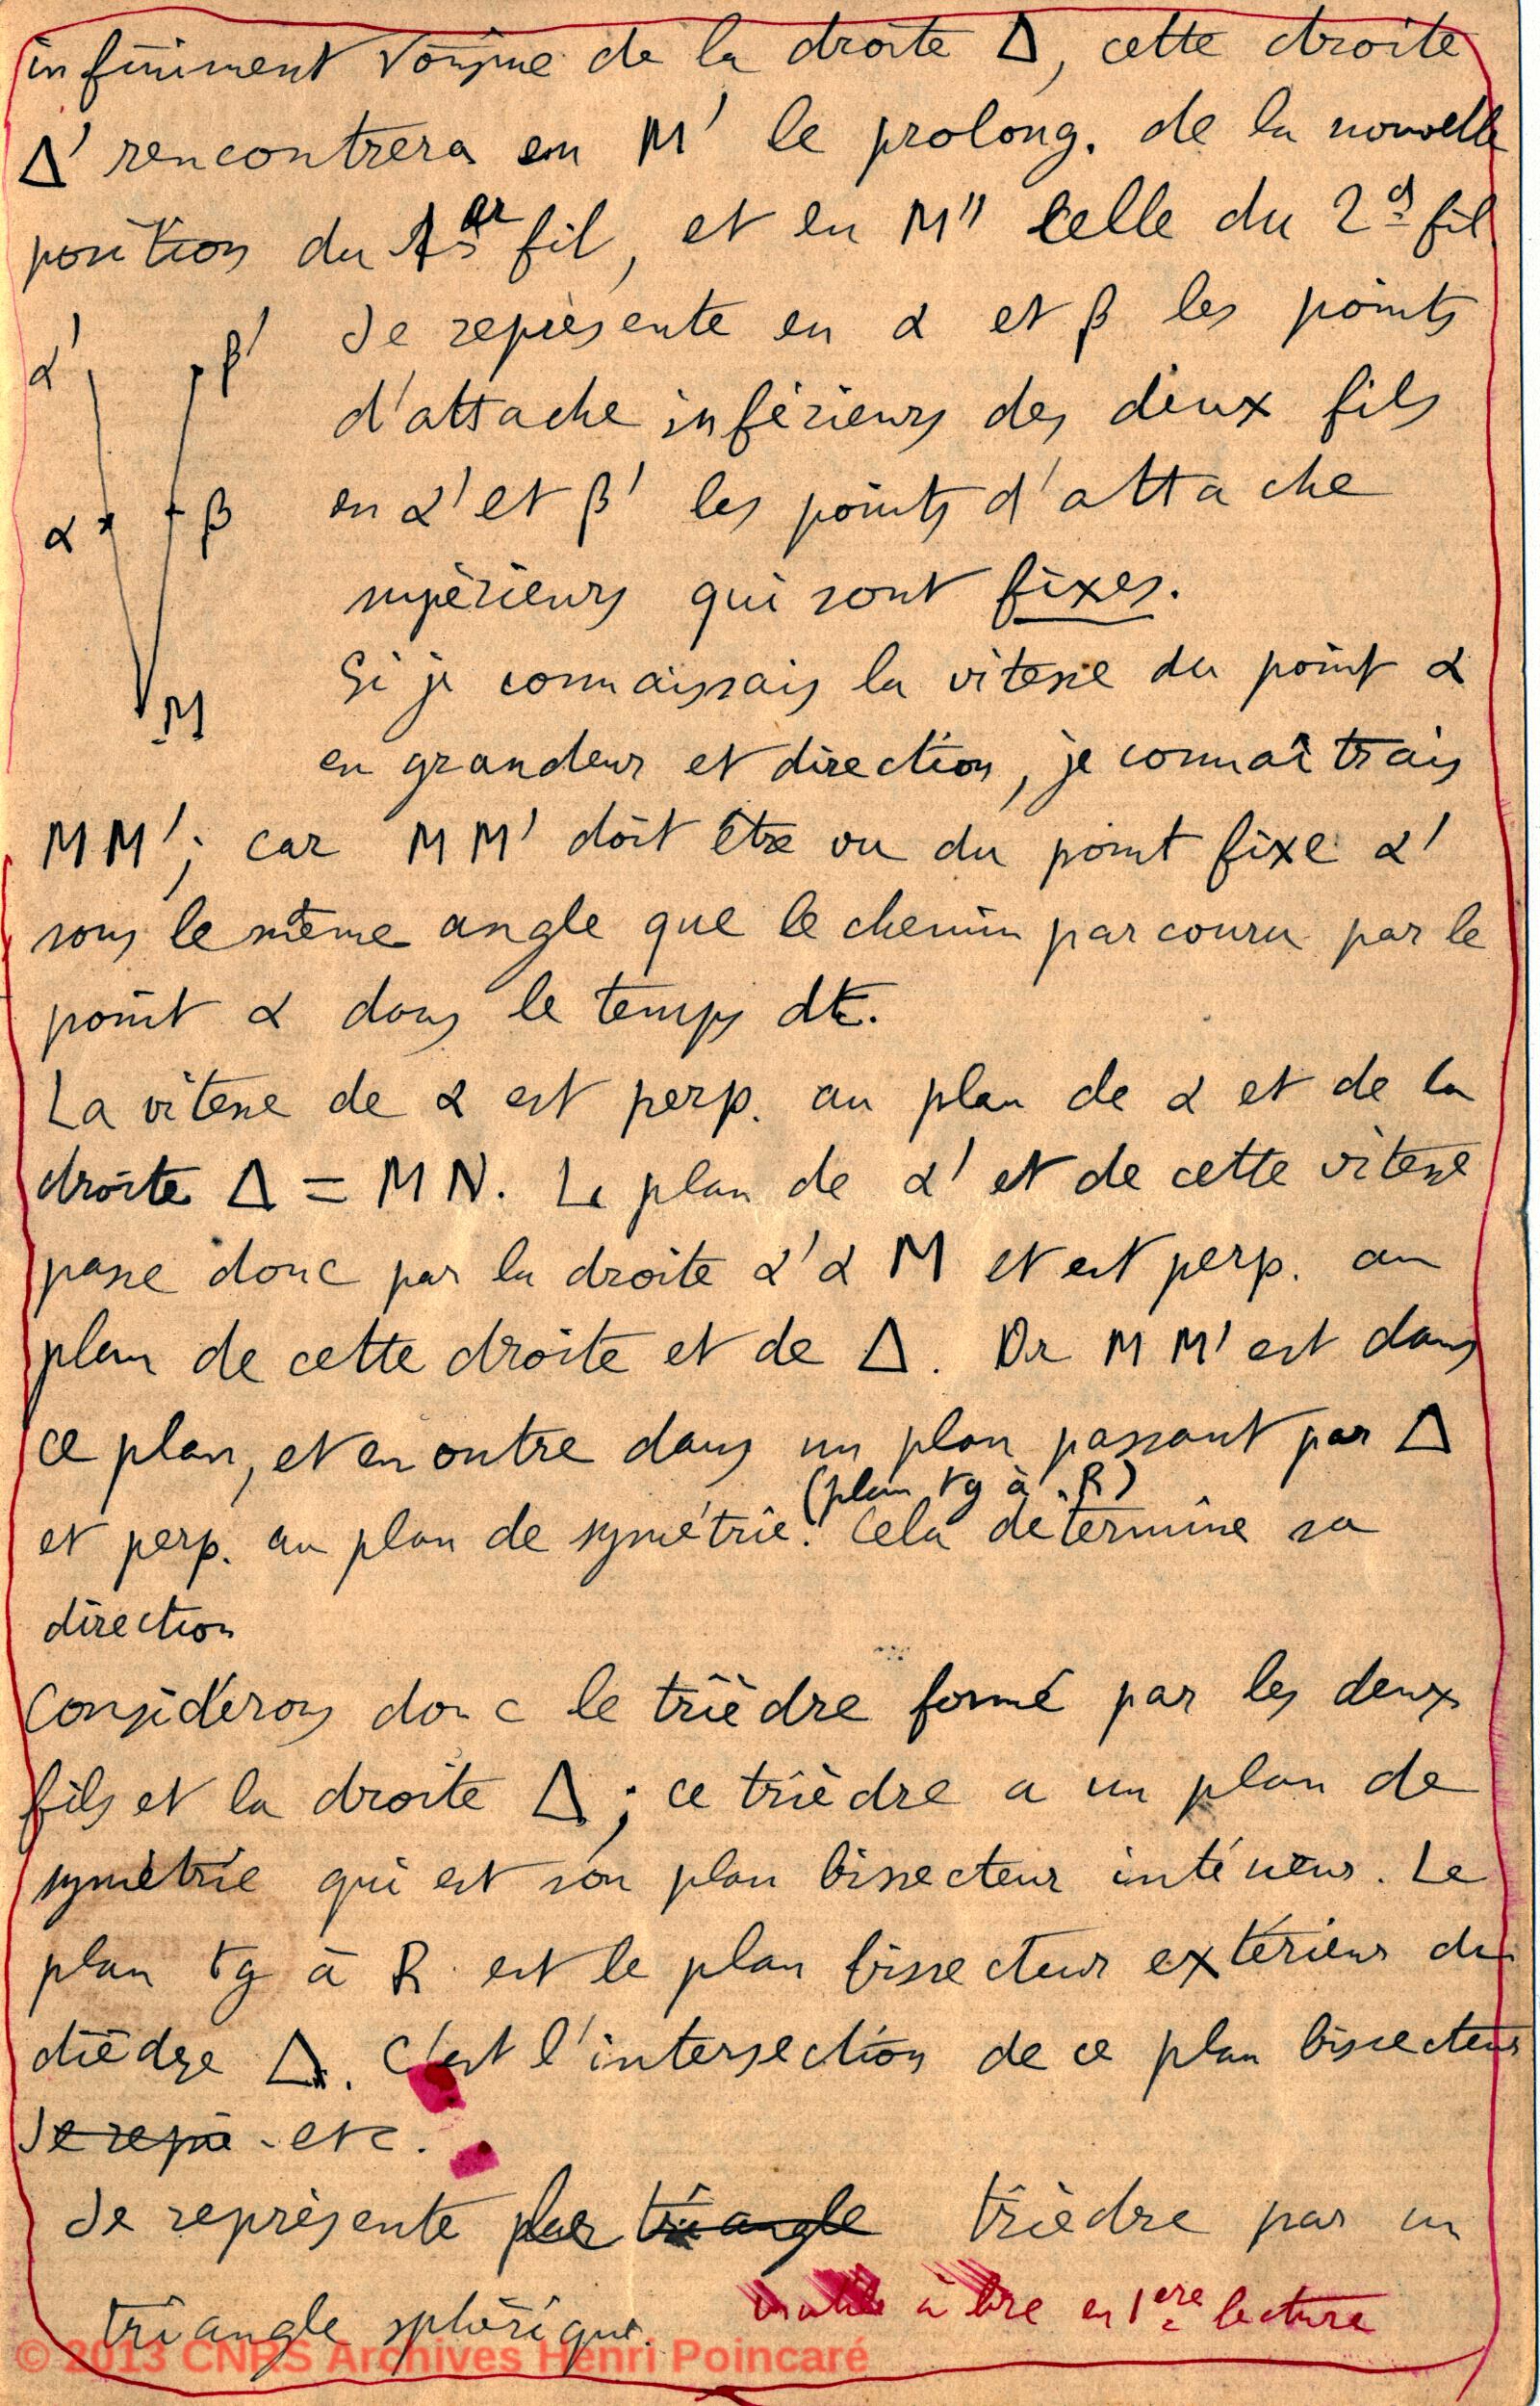 infiniment voisine de la droite Δ, cette droite
Δ' rencontrera en M' le prolong. de la nouvelle
position du 1er fil, et en M'' celle du 2d fil
α' β' Je représente en α et β les points
d'attache inférieurs des deux fils
α β en α' et β' les points d'attache
supérieurs qui sont fixes.
M Si je connaissais la vitesse du point α
en grandeur et direction, je connaîtrais
MM'; car MM' doit être vu du point fixe α'
sous le même angle que le chemin parcouru par le
point α dans le temps dt.
La vitesse de α est perp. au plan de α et de la
droite Δ = MN. Le plan de α' et de cette vitesse
passe donc par la droite α'α M et est perp. au
plan de cette droite et de Δ. Or MM' est dans
ce plan, et en outre dans un plan passant par Δ
(plan tg à R)
et perp. au plan de symétrie. Cela détermine sa
direction
Considérons donc le trièdre formé par les deux
fils et la droite Δ; ce trièdre a un plan de
symétrie qui est son plan bissecteur intérieur. Le
plan tg à R est le plan bissecteur extérieur du
dièdre Δ. C'est l'intersection de ce plan bissecteur
Je repré - etc.
Je représente triangle trièdre par un
triangle sphérique.
inutile à lire en 1ère lecture
© 2013 CNRS Archives Henri Poincaré